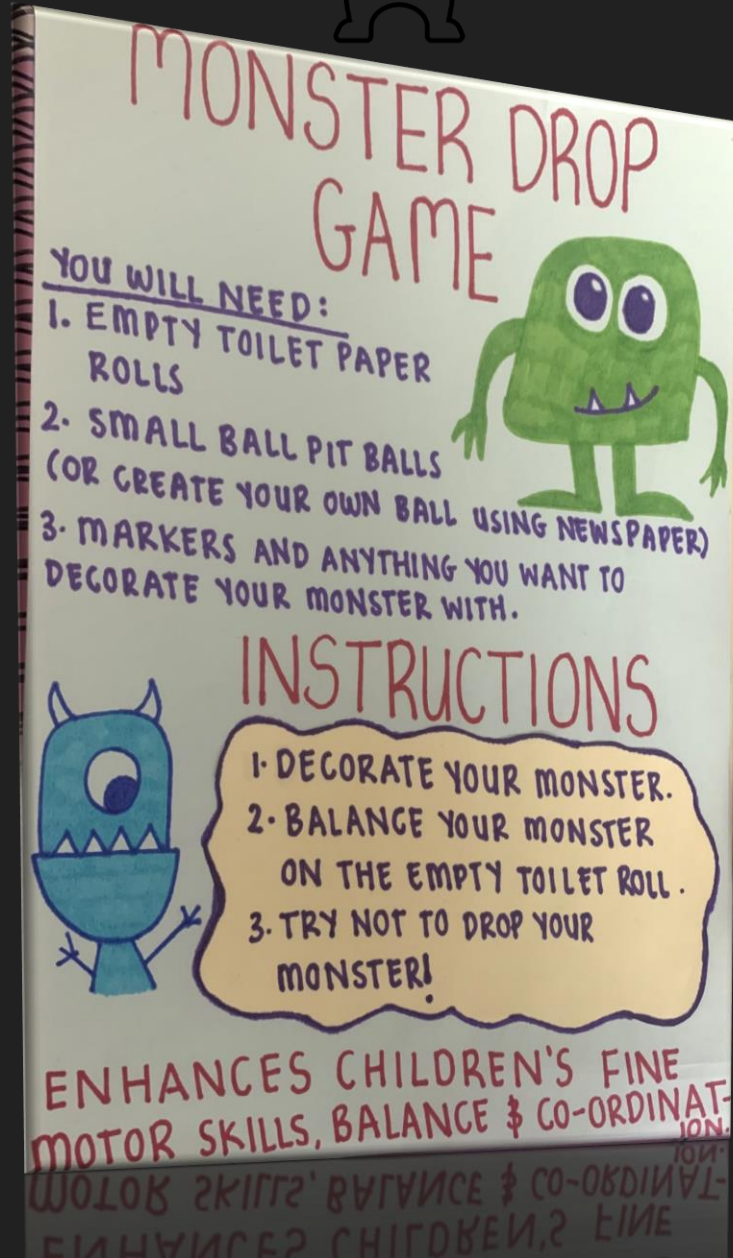 MONSTER DROP
GAME
YOU WILL NEED:
1. EMPTY TOILET PAPER
ROLLS
2. SMALL BALL PIT BALLS
(OR CREATE YOUR OWN BALL USING NEWSPAPER)
3. MARKERS AND ANYTHING YOU WANT TO
DECORATE YOUR MONSTER WITH.
INSTRUCTIONS
1. DECORATE YOUR MONSTER.
2. BALANCE YOUR MONSTER
ON THE EMPTY TOILET ROLL.
3. TRY NOT TO DROP YOUR
MONSTER!
ENHANCES CHILDREN'S FINE
MOTOR SKILLS, BALANCE & CO-ORDINAT-
ION.